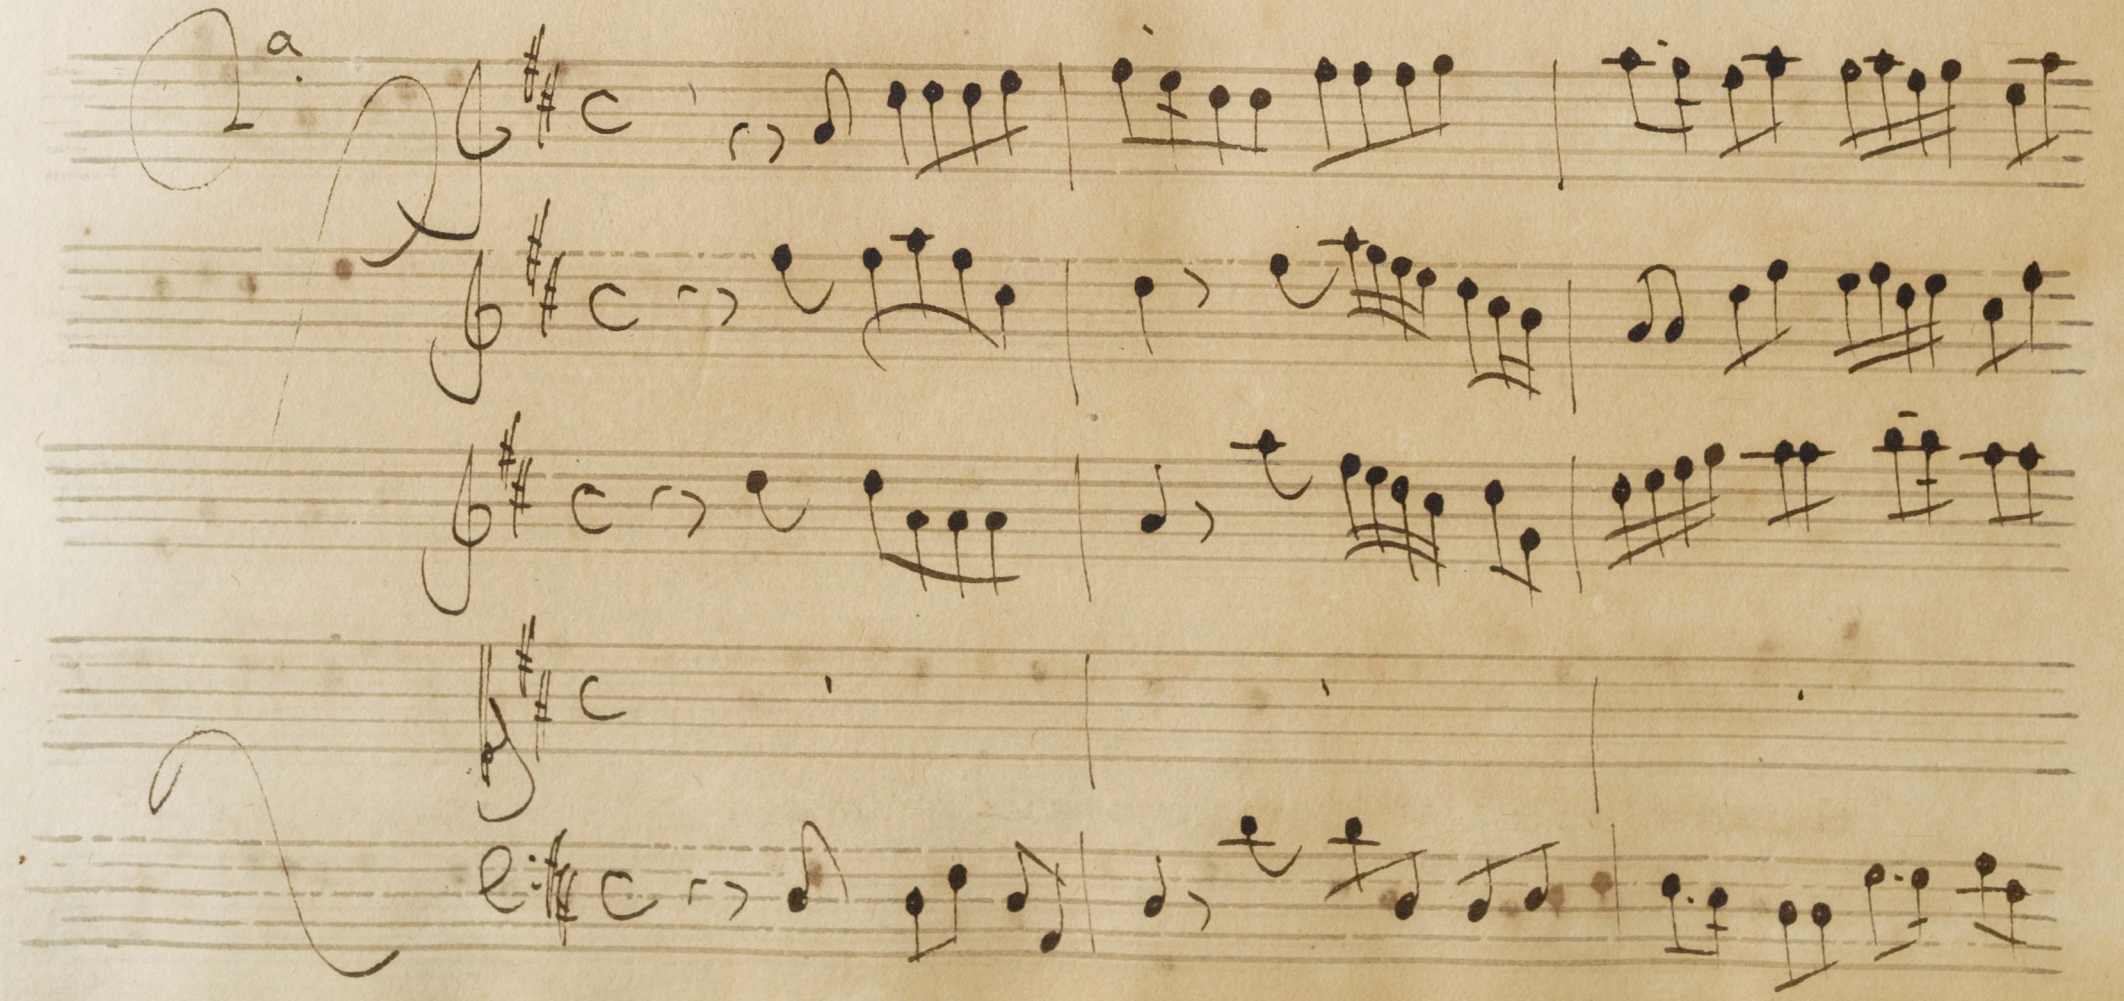 2.
a.